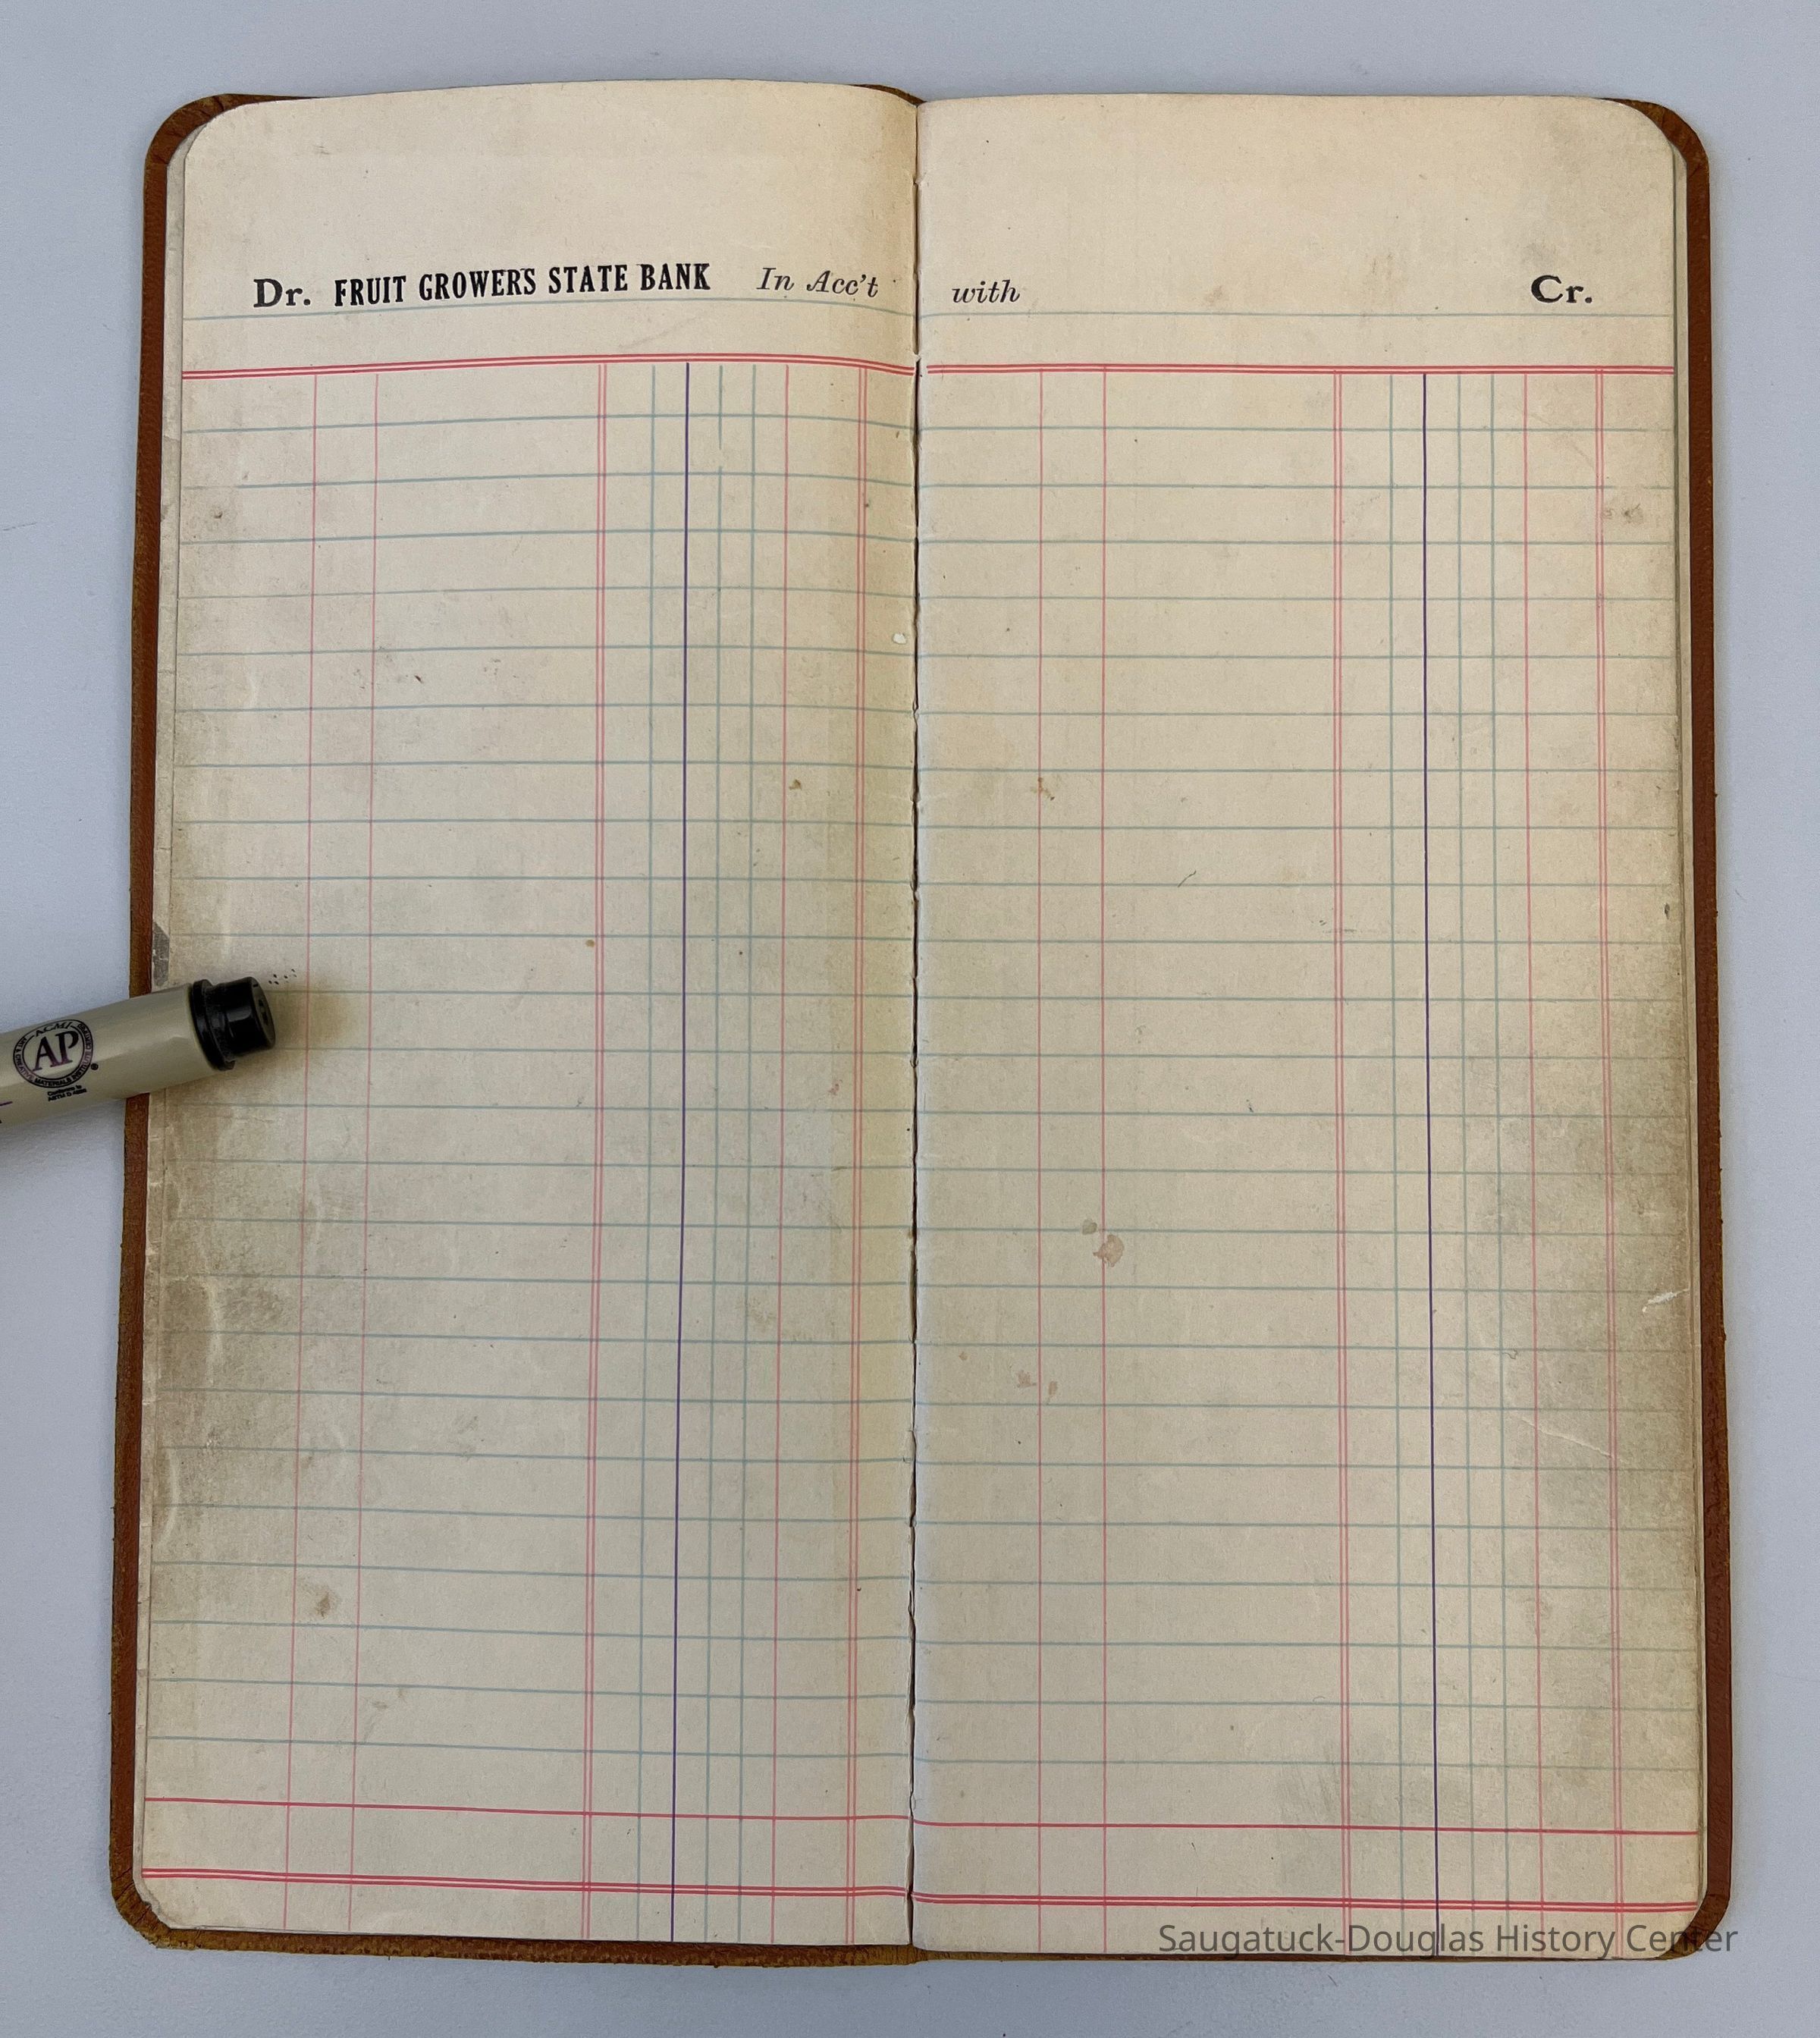 Dr. FRUIT GROWERS STATE BANK In Acc't with Cr.
AP
Saugatuck-Douglas History Center